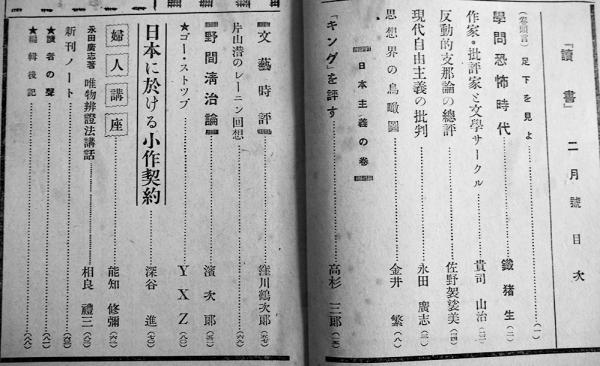 『讀書』 二月號目次
(卷頭言) 足下を見よ……(一)
學問恐怖時代……鐵猪生(二)
作家・批評家と文學サークル……貴司山治(三)
反動的支那論の總評……佐野袈裟美(四)
現代自由主義の批判……永田廣志
思想界の鳥瞰圖……金井繁(八)
日本主義の卷
『キング』を評す……高杉三郎
文藝時評……窪川鶴次郎
片山潜のレーニン回想
野間淸治論……濱次郎
★ゴー・ストップ……YXZ
日本に於ける小作契約……深谷進
婦人講座……能知修彌
永田廣志著 唯物辨證法講話……相良禮三
新刊ノート
★讀者の聲
★編輯後記